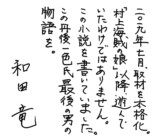 二〇一九年十月、取材を本格化
「村上海賊の娘」以降、遊んで
いたわけではありません。
この小説を書いていました。
この丹後一色氏最後の男の
物語を。
和田竜